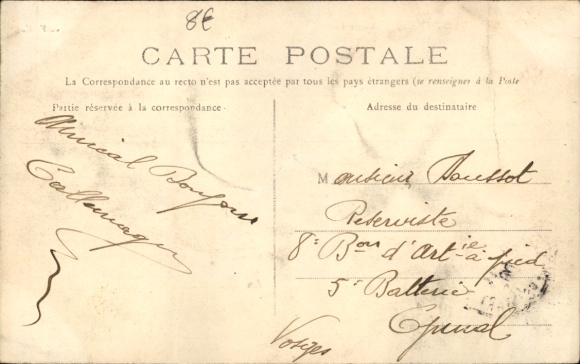 8€
CARTE POSTALE
La Correspondance au recto n'est pas acceptée par tous les pays étrangers (se renseigner à la Poste
Partie réservée à la correspondance
Adresse du destinataire
Amical Bonjour
Monsieur Houssot
Reserviste
8e Bon d'Artie à pied
5e Batterie
Epinal
Vosges